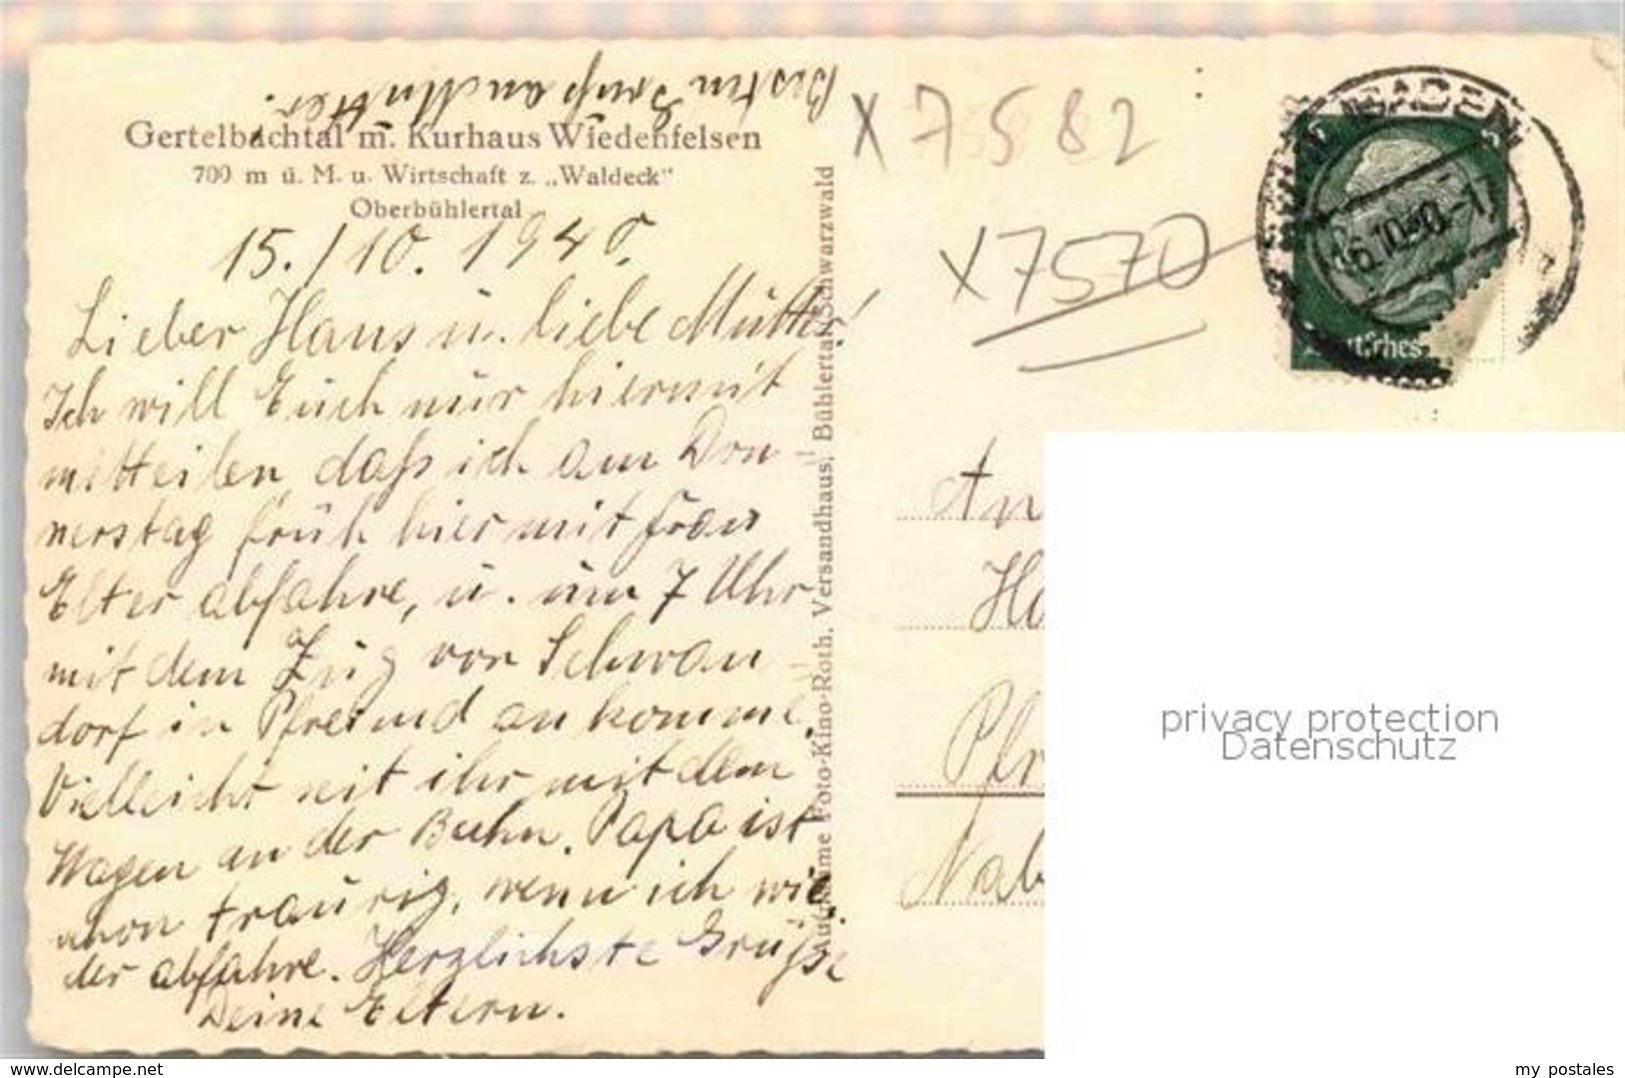 Besten Gruß an Mutter.
Gertelbachtal m. Kurhaus Wiedenfelsen
700 m ü. M. u. Wirtschaft z. „Waldeck"
Oberbühlertal
15./10. 1940.
Lieber Hans u. liebe Mutter!
Ich will Euch nur hiermit
mitteilen daß ich am Don-
nerstag früh hier mit Frau
Elter abfahre, u. um 7 Uhr
mit dem Zug von Schwan
dorf in Pfreimd ankomme.
Vielleicht seit ihr mit dem
Wagen an der Bahn. Papa ist
schon traurig, wenn ich wie
der abfahre. Herzlichste Grüße
Deine Eltern.
Aufnahme Foto-Kino-Roth, Versandhaus, Bühlertal Schwarzwald
X 7582
X 7570
BADEN
16.10.40.-17
6
Deutsches
An
Ha
Pfr
Nab
privacy protection
Datenschutz
www.delcampe.net
my_postales